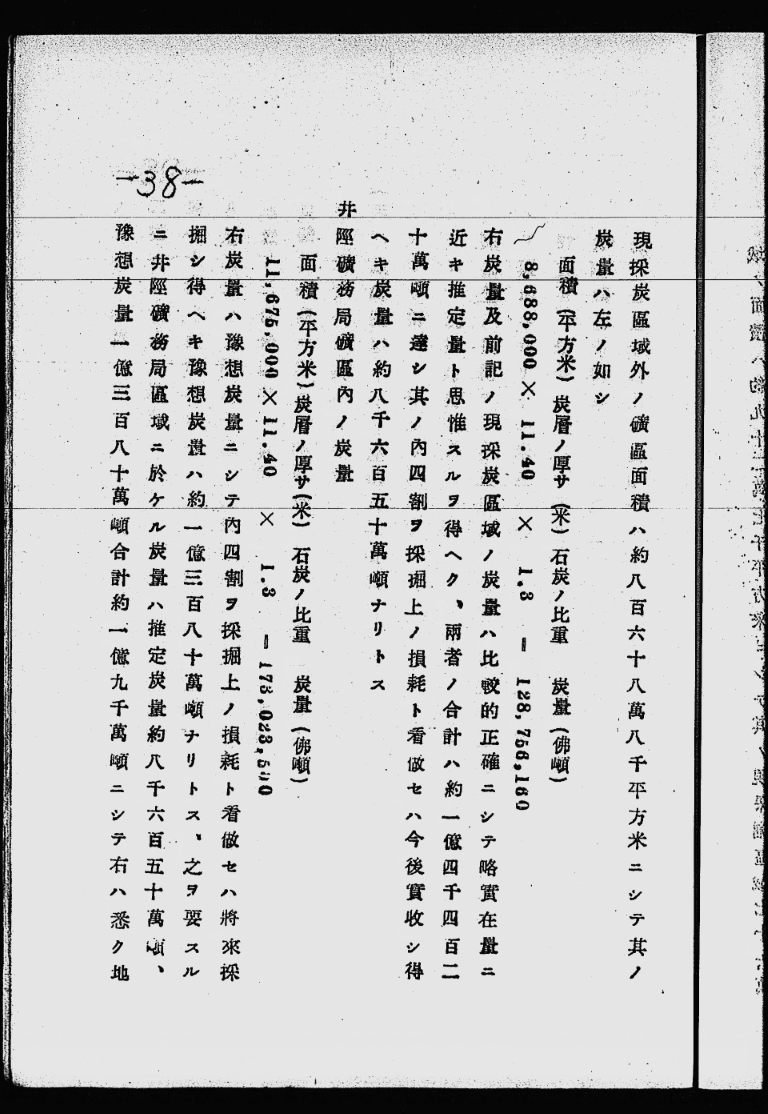 -38-
現採炭區域外ノ礦區面積ハ約八百六十八萬八千平方米ニシテ其ノ
炭量ハ左ノ如シ
面積(平方米) 炭層ノ厚サ(米) 石炭ノ比重 炭量(佛噸)
8,688,000 × 11.40 × 1.3 = 128,756,160
右炭量及前記ノ現採炭區域ノ炭量ハ比較的正確ニシテ略實在量ニ
近キ推定量ト思惟スルヲ得ヘク、兩者ノ合計ハ約一億四千四百二
十萬噸ニ達シ其ノ內四割ヲ採掘上ノ損耗ト看做セハ今後實收シ得
ヘキ炭量ハ約八千六百五十萬噸ナリトス
井陘礦務局礦區內ノ炭量
面積(平方米) 炭層ノ厚サ(米) 石炭ノ比重 炭量(佛噸)
11,675,000 × 11.40 × 1.3 = 173,023,500
右炭量ハ豫想炭量ニシテ內四割ヲ採掘上ノ損耗ト看做セハ將來採
掘シ得ヘキ豫想炭量ハ約一億三百八十萬噸ナリトス、之ヲ要スル
ニ井陘礦務局區域ニ於ケル炭量ハ推定炭量約八千六百五十萬噸、
豫想炭量一億三百八十萬噸合計約一億九千萬噸ニシテ右ハ悉ク地